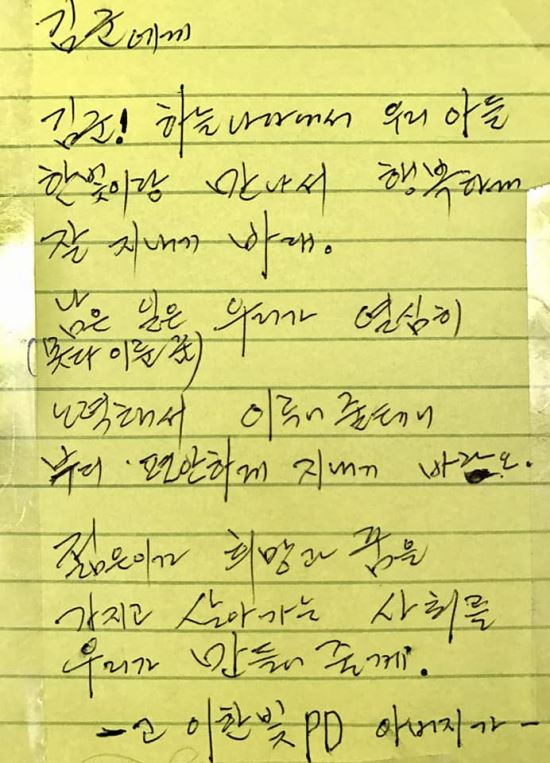 김군에게
김군! 하늘나라에서 우리 아들
한빛이랑 만나서 행복하게
잘 지내기 바래.
남은 일은 우리가 열심히
(못다 이룬 꿈)
노력해서 이루어 줄테니
부디 편안하게 지내기 바라오.
젊은이가 희망과 꿈을
가지고 살아가는 사회를
우리가 만들어 줄게.
- 고 이한빛PD 아버지가 -